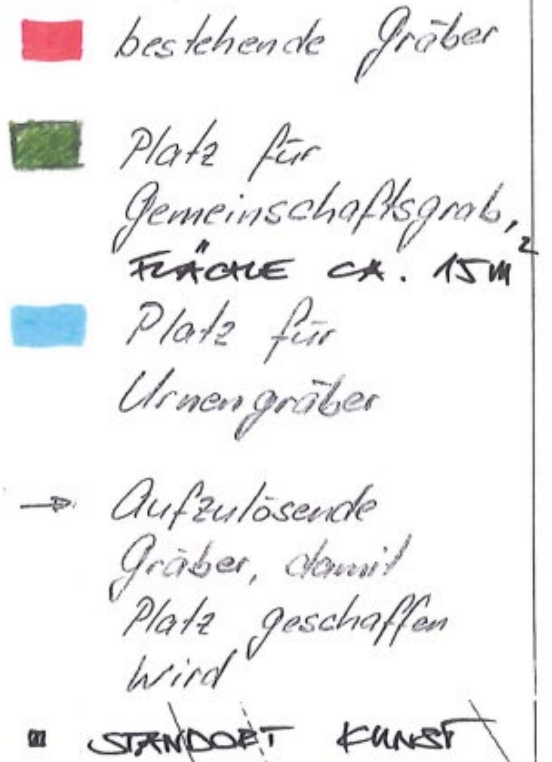 bestehende Gräber
Platz für
Gemeinschaftsgrab,
FLÄCHE CA. 15m²
Platz für
Urnengräber
Aufzulösende
Gräber, damit
Platz geschaffen
wird
STANDORT KUNST